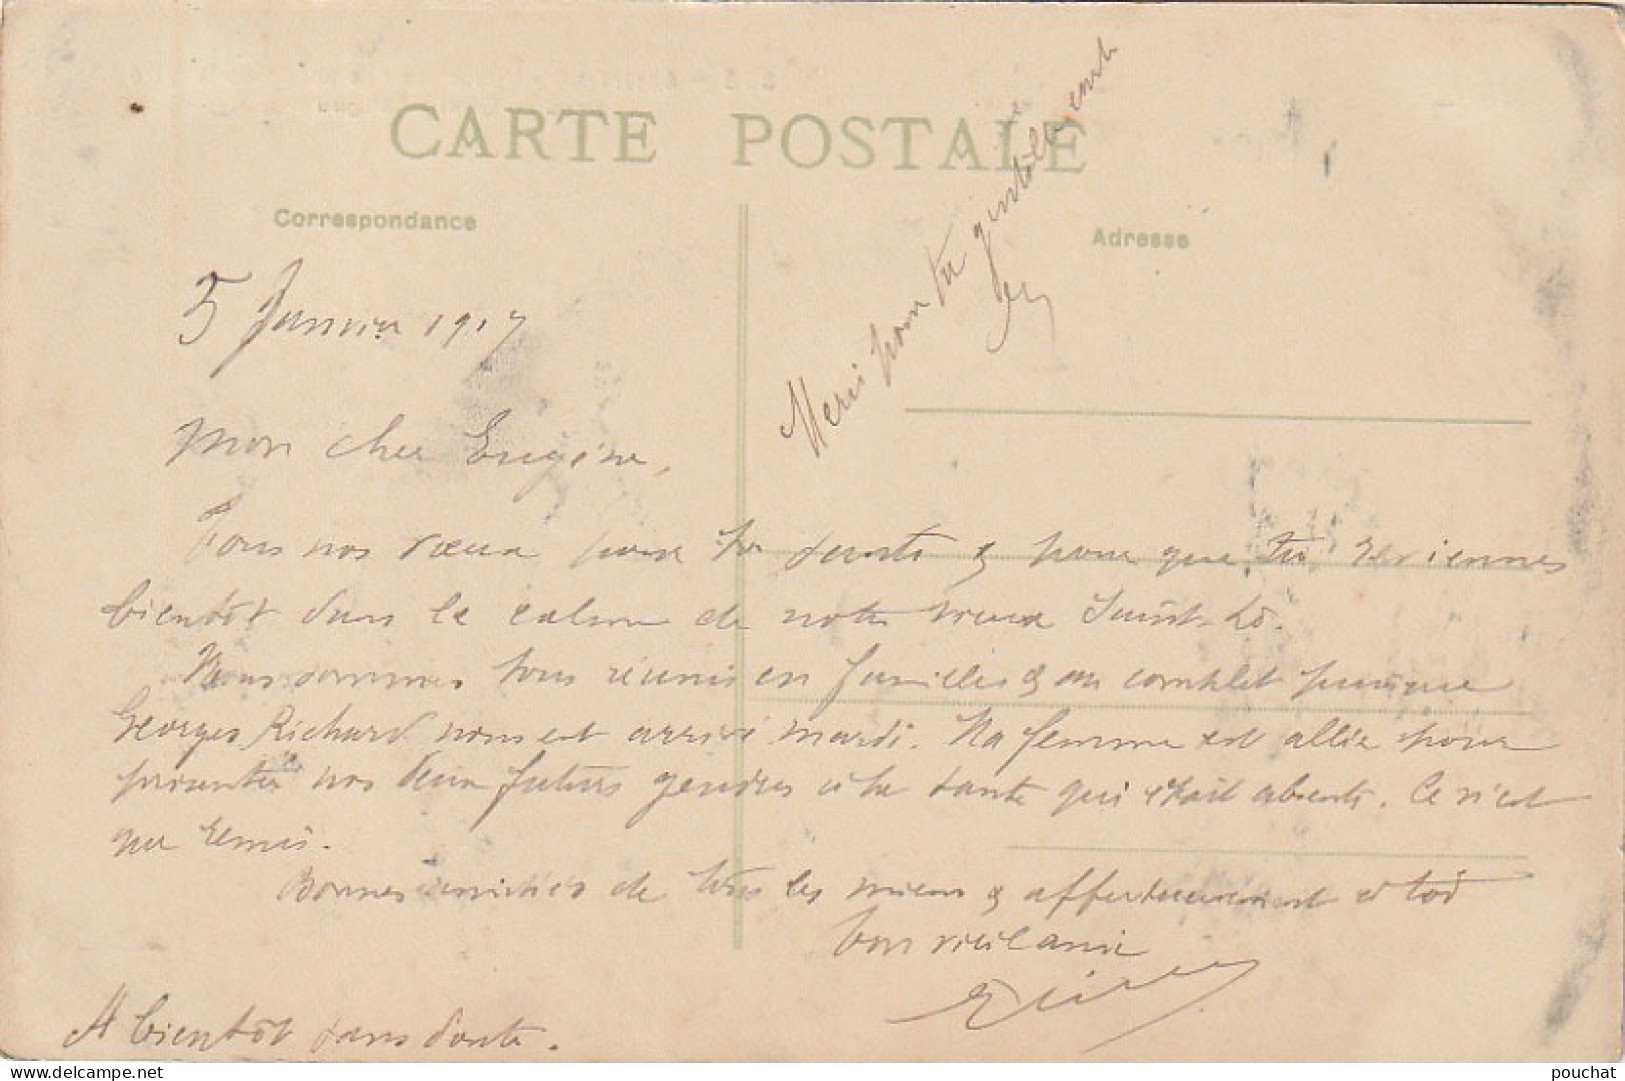 CARTE POSTALE
Correspondance
Adresse
Merci pour ta gentille carte
5 Janvier 1917
Mon cher Eugène,
Tous nos vœux pour ta santé & pour que tu reviennes
bientôt dans le calme de notre vieux Saint-Lô.
Nous sommes tous réunis en familles & au complet puisque
Georges Richard nous est arrivé mardi. Ma femme est allée pour
présenter nos deux futurs gendres à ta tante qui était absente. Ce n'est
que remis.
Bonnes amitiés de tous les miens & affectueusement à toi
ton vieil ami
A bientôt sans doute.
pouchat